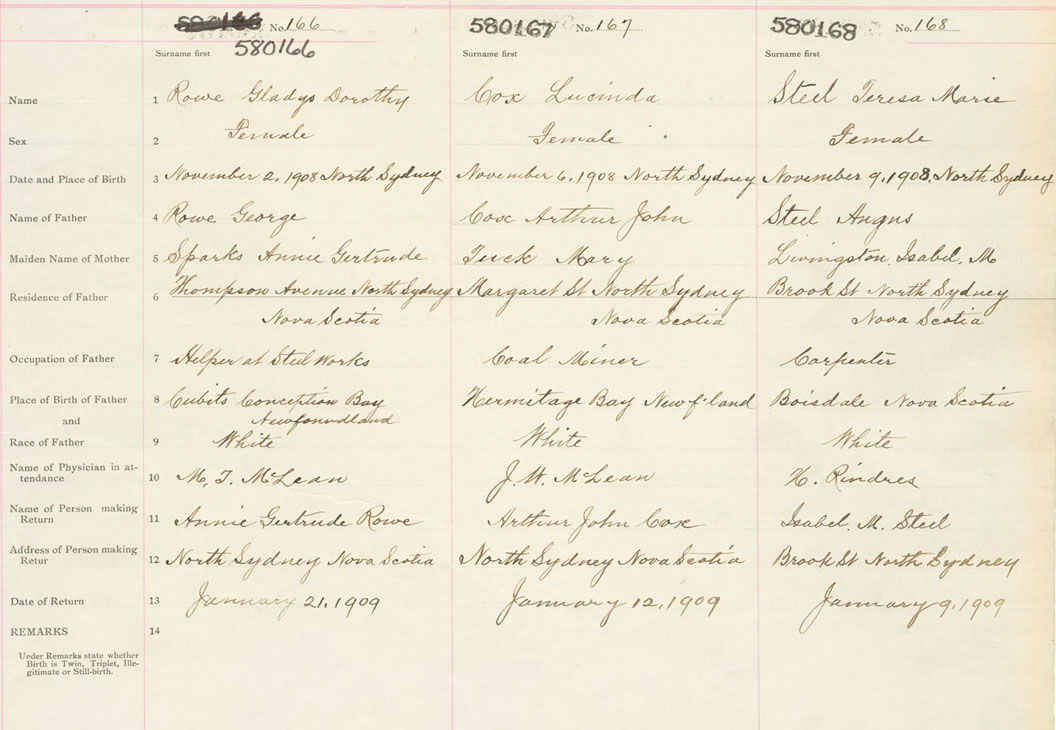 580166 No. 166 580167 No. 167 580168 No. 168
Surname first 580166 Surname first Surname first
Name 1 Rowe Gladys Dorothy Cox Lucinda Steel Teresa Marie
Sex 2 Female Female Female
Date and Place of Birth 3 November 2, 1908 North Sydney November 6, 1908 North Sydney November 9, 1908, North Sydney
Name of Father 4 Rowe George Cox Arthur John Steel Angus
Maiden Name of Mother 5 Sparks Annie Gertrude Tuck Mary Livingston, Isabel. M
Residence of Father 6 Thompson Avenue North Sydney Margaret St North Sydney Brook St North Sydney
Nova Scotia Nova Scotia Nova Scotia
Occupation of Father 7 Helper at Steel Works Coal Miner Carpenter
Place of Birth of Father 8 Cubits Conception Bay Hermitage Bay Newf'land Boisdale Nova Scotia
and Newfoundland
Race of Father 9 White White White
Name of Physician in at-
tendance 10 M. T. McLean J. W. McLean H. Rindres
Name of Person making
Return 11 Annie Gertrude Rowe Arthur John Cox Isabel. M. Steel
Address of Person making
Retur 12 North Sydney Nova Scotia North Sydney Nova Scotia Brook St North Sydney
Date of Return 13 January 21, 1909 January 12, 1909 January 9, 1909
REMARKS 14
Under Remarks state whether
Birth is Twin, Triplet, Ille-
gitimate or Still-birth.